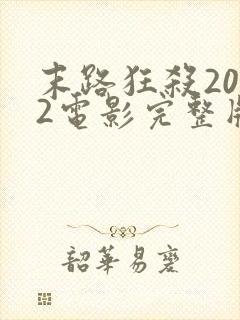 末路狂殺20
2電影完整
韶華易老